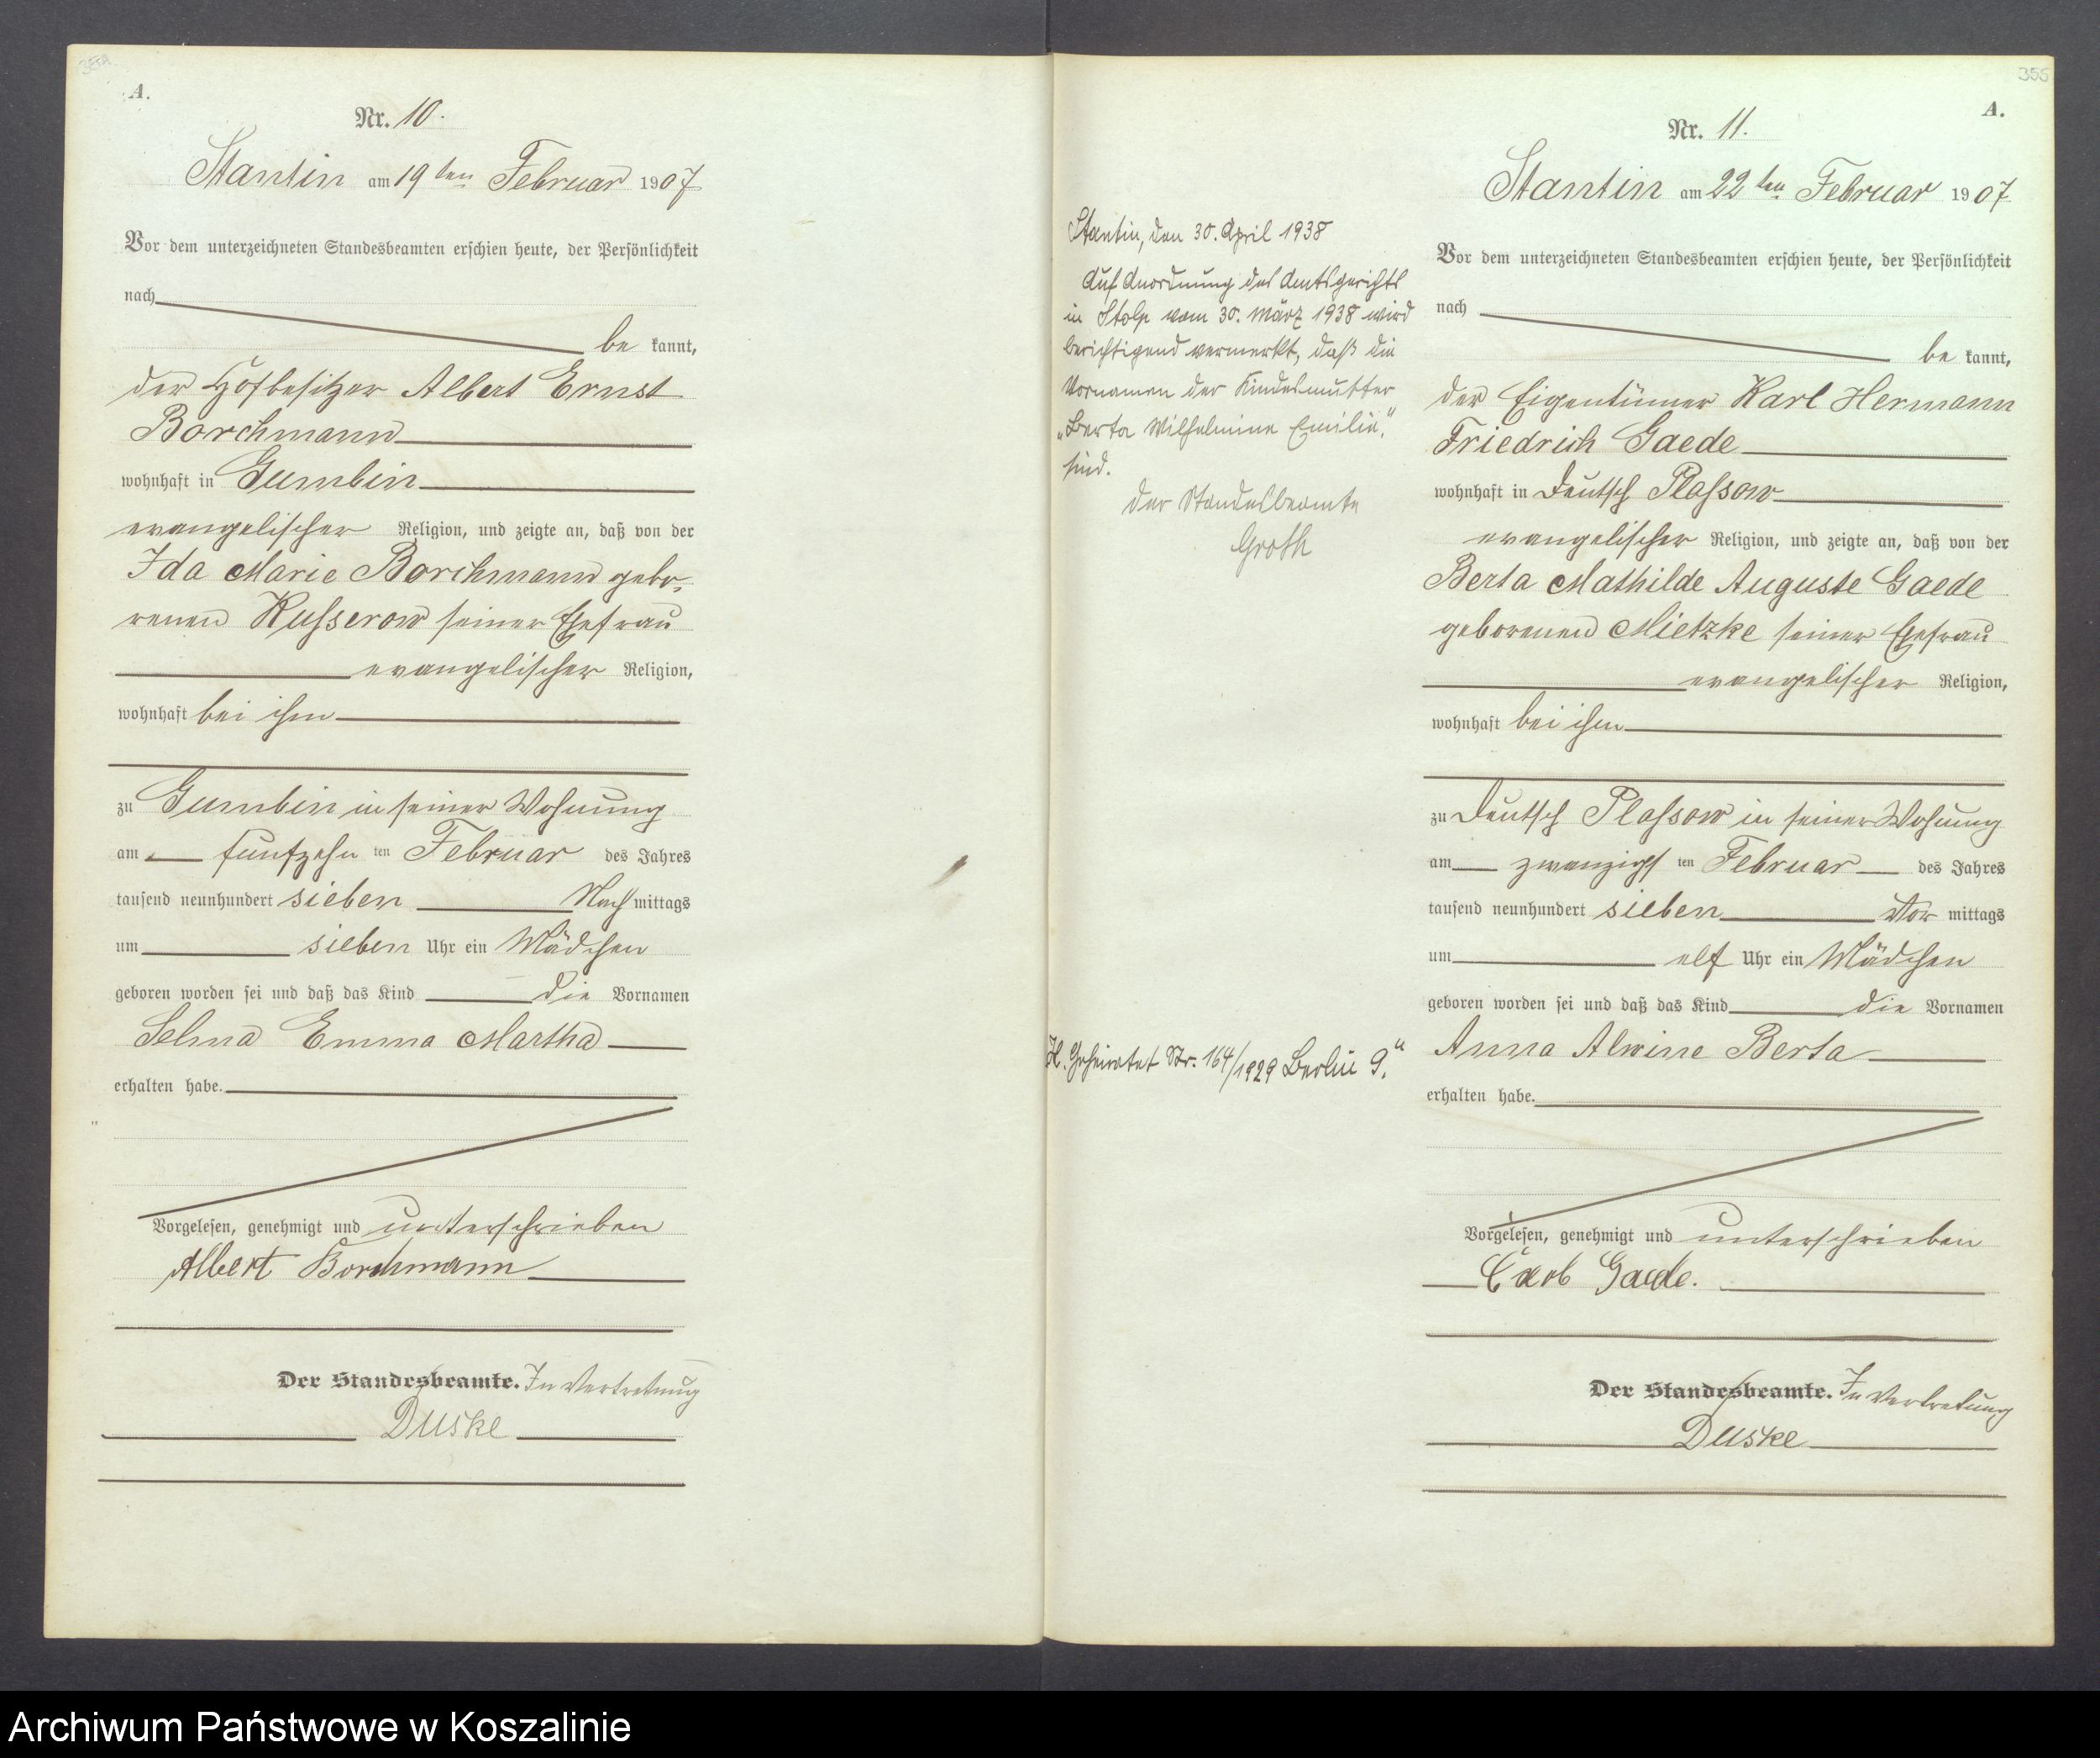 A.
Nr. 10.
Stantin am 19ten Februar 1907
Vor dem unterzeichneten Standesbeamten erschien heute, der Persönlichkeit
nach
be kannt,
der Hofbesitzer Albert Ernst
Borchmann
wohnhaft in Gumbin
evangelischer Religion, und zeigte an, daß von der
Ida Marie Borchmann gebo-
renen Kusserow seiner Ehefrau
evangelischer Religion,
wohnhaft bei ihm
zu Gumbin in seiner Wohnung
am fünfzehn ten Februar des Jahres
tausend neunhundert sieben Nach mittags
um sieben Uhr ein Mädchen
geboren worden sei und daß das Kind die Vornamen
Selma Emma Martha
erhalten habe.
Vorgelesen, genehmigt und unterschrieben
Albert Borchmann
Der Standesbeamte. In Vertretung
Duske
355
A.
Nr. 11.
Stantin am 22ten Februar 1907.
Vor dem unterzeichneten Standesbeamten erschien heute, der Persönlichkeit
nach
be kannt,
der Eigentümer Karl Hermann
Friedrich Gaede
wohnhaft in Deutsch Plassow
evangelischer Religion, und zeigte an, daß von der
Berta Mathilde Auguste Gaede
geborenen Mietzke seiner Ehefrau
evangelischer Religion,
wohnhaft bei ihm
zu Deutsch Plassow in seiner Wohnung
am zwanzigs ten Februar des Jahres
tausend neunhundert sieben Vor mittags
um elf Uhr ein Mädchen
geboren worden sei und daß das Kind die Vornamen
Anna Alwine Berta
erhalten habe.
Vorgelesen, genehmigt und unterschrieben
Carl Gaede.
Der Standesbeamte. In Vertretung
Duske
Stantin, den 30. April 1938
Auf Anordnung des Amtsgerichts
in Stolp vom 30. März 1938 wird
berichtigend vermerkt, daß die
Vornamen der Kindesmutter
„Berta Wilhelmine Emilie“
sind.
Der Standesbeamte
Groth
Geheiratet Nr. 164/1929 Berlin 9.
Archiwum Państwowe w Koszalinie